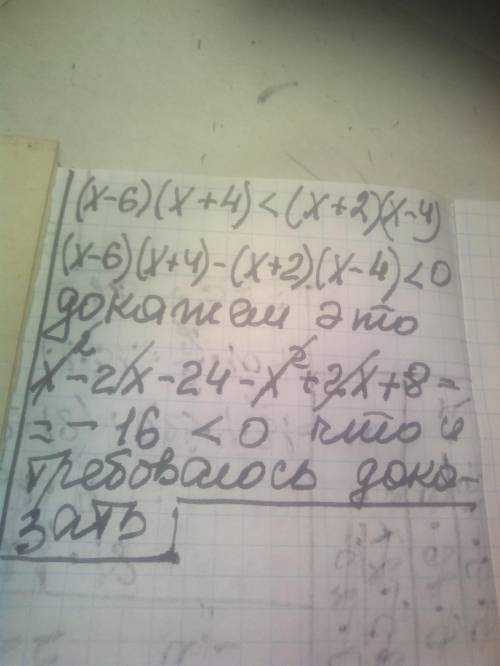 (x-6)(x+4)<(x+2)(x-4)
(x-6)(x+4)-(x+2)(x-4)<0
докажем это
x²-2x-24-x²+2x+8=
=-16 <0 что и
требовалось дока-
зать